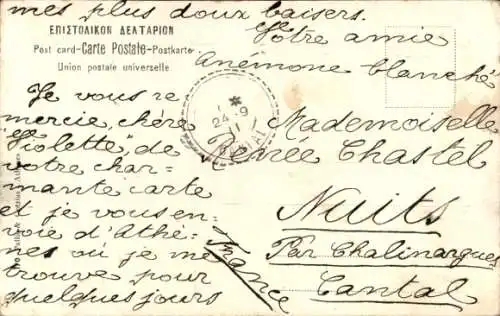 mes plus doux baisers.
Votre amie
Anémone blanche
ΕΠΙΣΤΟΛΙΚΟΝ ΔΕΛΤΑΡΙΟΝ
Post card-Carte Postale-Postkarte
Union postale universelle
24-9
Je vous re
mercie, chère
"Violette", de
votre char-
mante carte
et je vous en-
voie d'Athè-
nes où je me
trouve pour
quelques jours
Mademoiselle
Renée Chastel
Nuits
Par Chalinargues
Cantal
France